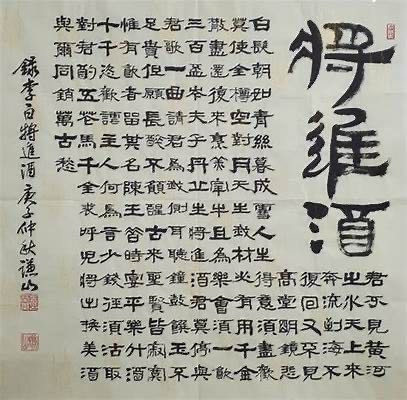 將進酒
君不見黃河
之水天上來
奔流到海不
復回又不見
高堂明鏡悲
白髮朝如青絲暮成雪人生得意須盡歡
莫使金樽空對月天生我材必有用千金
散盡還復來烹羊宰牛且為樂會須一飲
三百盃岑夫子丹丘生將進酒君莫停與
君歌一曲請君為我側耳聽鐘鼓饌玉不
足貴但願長醉不願醒古來聖賢皆寂寞
惟有飲者留其名陳王昔時宴平樂斗酒
十千恣歡謔主人何為言少錢徑須沽取
對君酌五花馬千金裘呼兒將出換美酒
與爾同銷萬古愁
錄李白將進酒庚子仲秋謙山